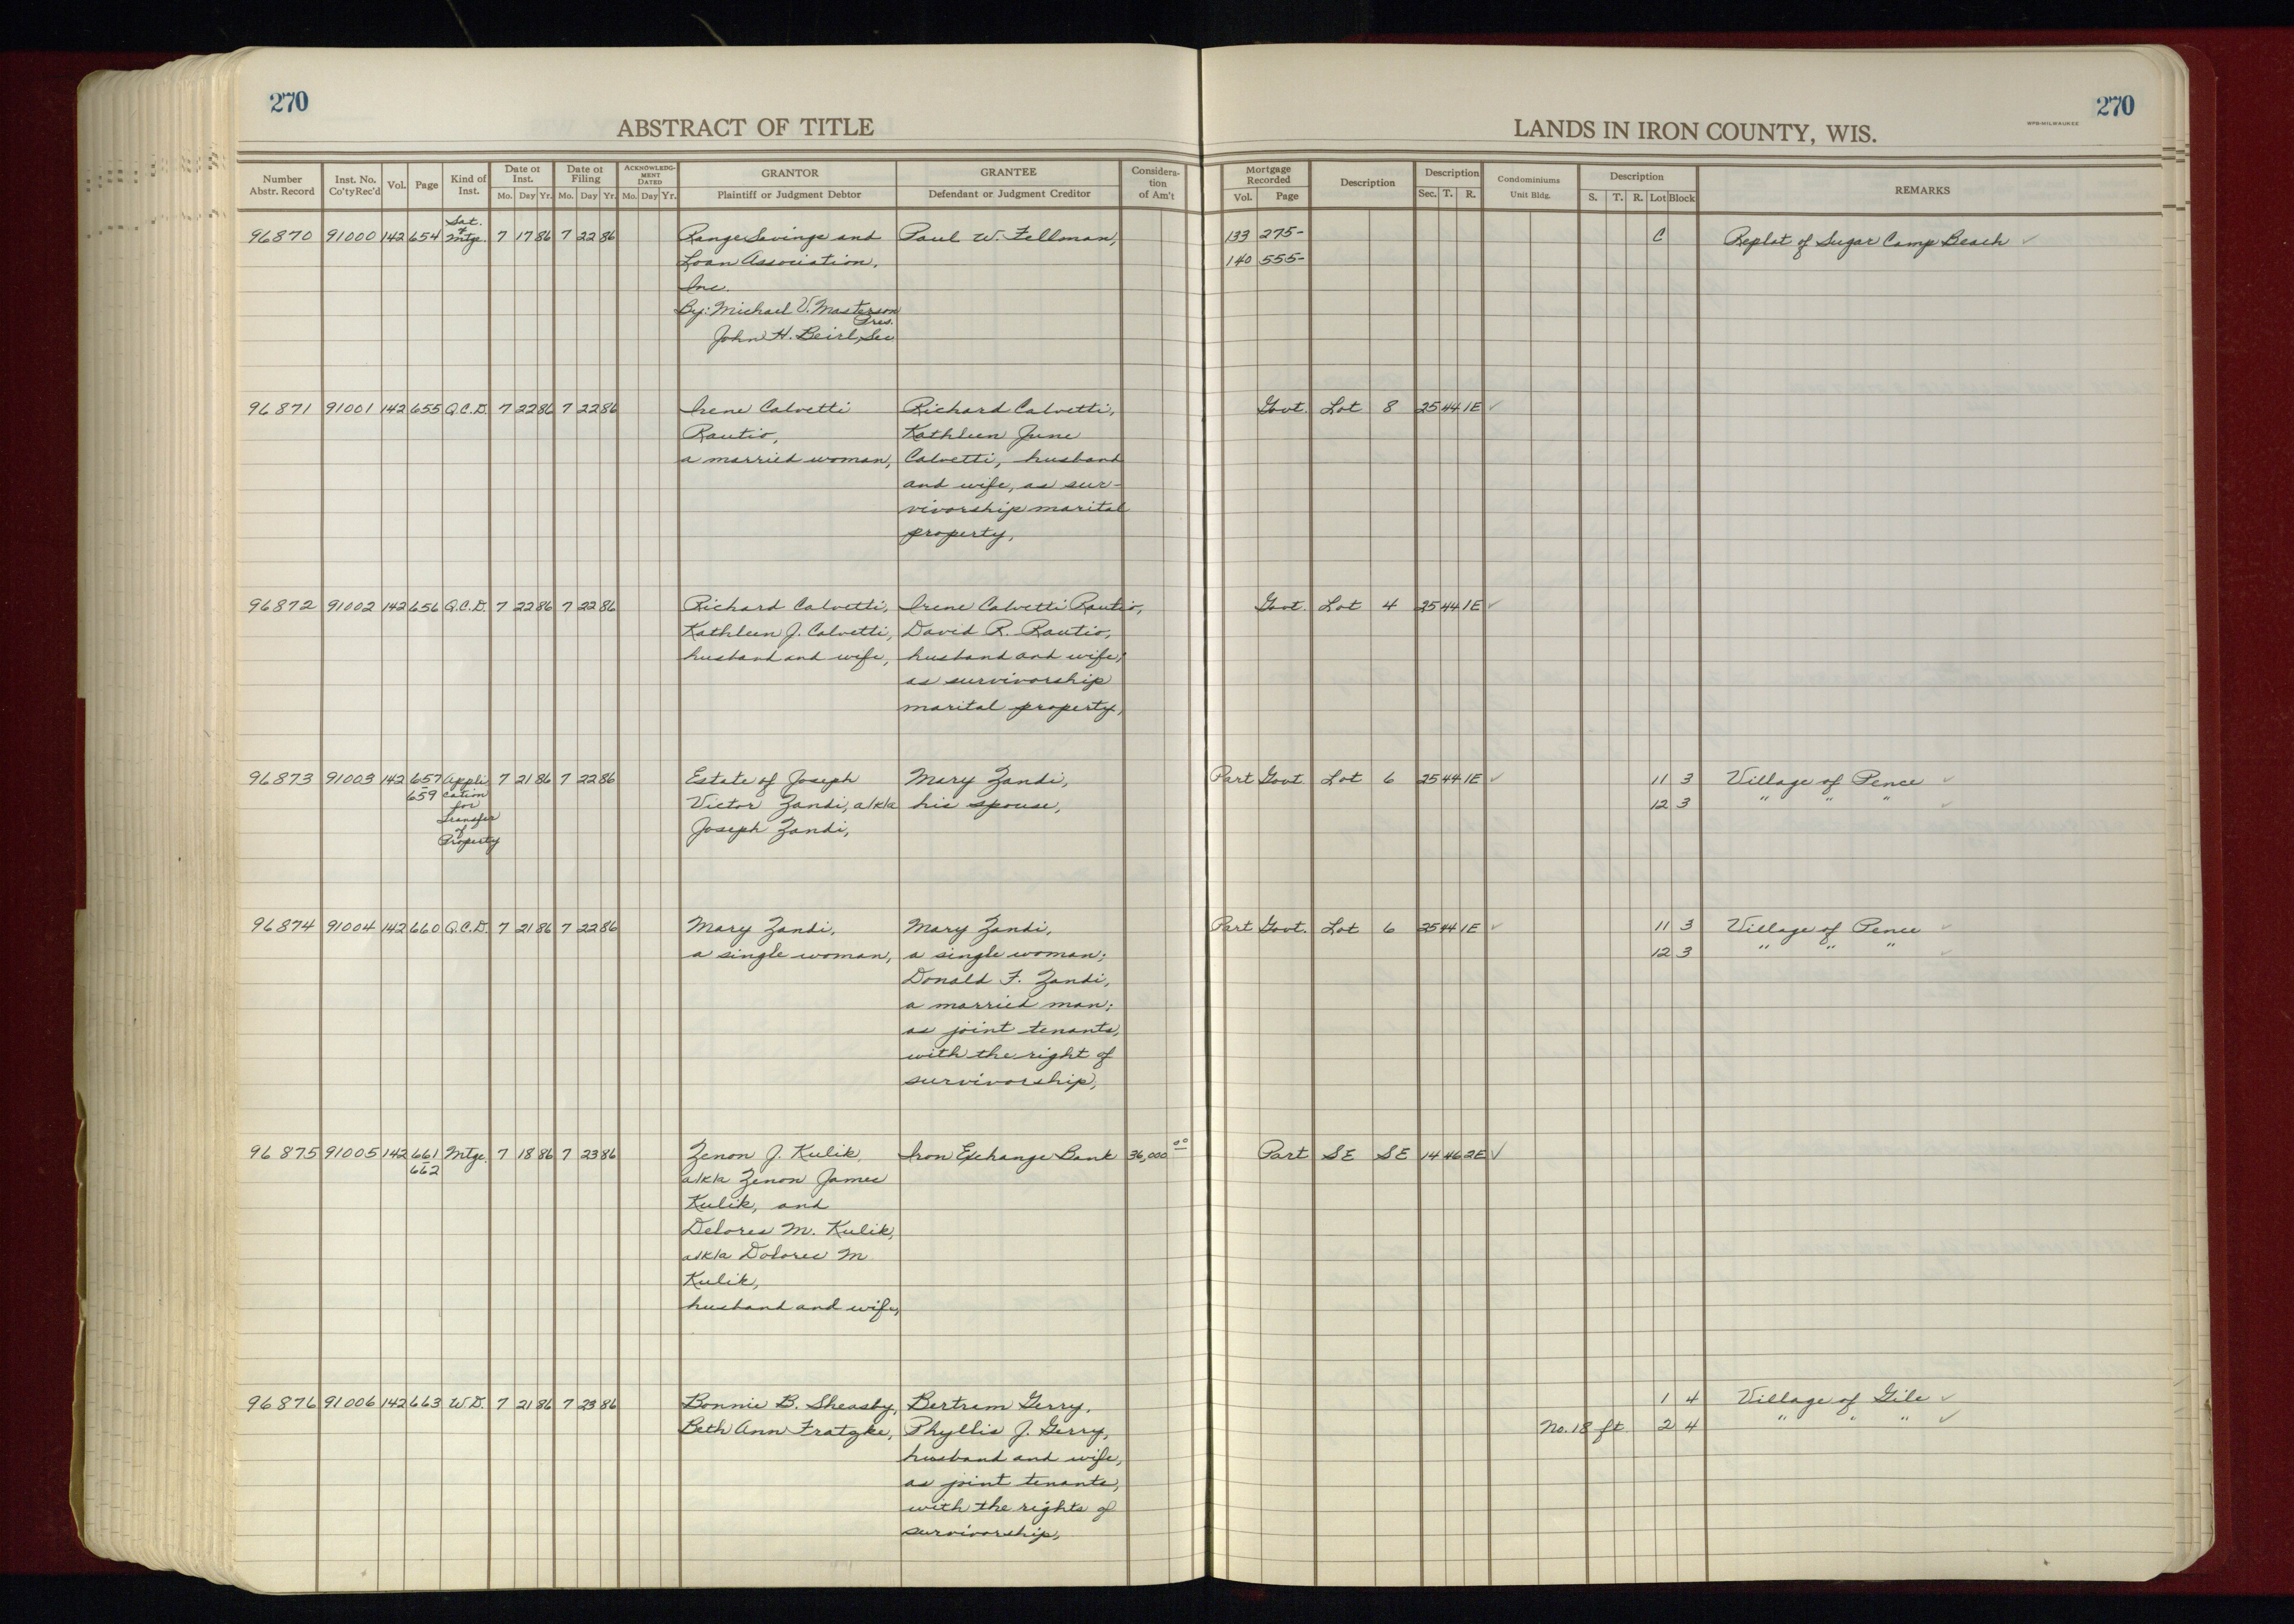 270
270
ABSTRACT OF TITLE
LANDS IN IRON COUNTY, WIS.
WPB-MILWAUKEE
Number Abstr. Record
Inst. No. Co'ty Rec'd
Vol.
Page
Kind of Inst.
Date of Inst.
Mo. Day Yr.
Date of Filing
Mo. Day Yr.
ACKNOWLEDG-MENT DATED
Mo. Day Yr.
GRANTOR
Plaintiff or Judgment Debtor
GRANTEE
Defendant or Judgment Creditor
Considera-tion of Am't
Mortgage Recorded
Vol. Page
Description
Description
Sec. T. R.
Condominiums
Unit Bldg.
Description
S. T. R. Lot Block
REMARKS
96870 91000 142 654 Sat. of Mtge. 7 17 86 7 22 86 Range Savings and Paul W. Fellman, 133 275- C Replat of Sugar Camp Beach ✓
Loan Association, 140 555-
Inc.
By: Michael V. Masterson
Pres.
John H. Beirl, Sec
96871 91001 142 655 Q.C.D. 7 22 86 7 22 86 Irene Calvetti Richard Calvetti, Govt. Lot 8 25 44 1E ✓
Rautio, Kathleen June
a married woman, Calvetti, husband
and wife, as sur-
vivorship marital
property,
96872 91002 142 656 Q.C.D. 7 22 86 7 22 86 Richard Calvetti, Irene Calvetti Rautio, Govt. Lot 4 25 44 1E ✓
Kathleen J. Calvetti, David R. Rautio,
husband and wife, husband and wife,
as survivorship
marital property,
96873 91003 142 657-659 Application for Transfer of Property 7 21 86 7 22 86 Estate of Joseph Mary Zandi, Part Govt. Lot 6 25 44 1E ✓ 11 3 Village of Pence ✓
Victor Zandi, a/k/a his spouse, 12 3 " " " ✓
Joseph Zandi,
96874 91004 142 660 Q.C.D. 7 21 86 7 22 86 Mary Zandi, Mary Zandi, Part Govt. Lot 6 25 44 1E ✓ 11 3 Village of Pence ✓
a single woman, a single woman; 12 3 " " " ✓
Donald F. Zandi,
a married man;
as joint tenants,
with the right of
survivorship,
96875 91005 142 661-662 Mtge. 7 18 86 7 23 86 Zenon J. Kulik, Iron Exchange Bank 36,000 00 Part SE SE 14 46 2E ✓
a/k/a Zenon James
Kulik, and
Delores M. Kulik,
a/k/a Dolores M
Kulik,
husband and wife,
96876 91006 142 663 W.D. 7 21 86 7 23 86 Bonnie B. Sheasby, Bertram Gerry, 1 4 Village of Gile ✓
Beth Ann Fratzke, Phyllis J. Gerry, No. 18 ft 2 4 " " " ✓
husband and wife,
as joint tenants,
with the rights of
survivorship,